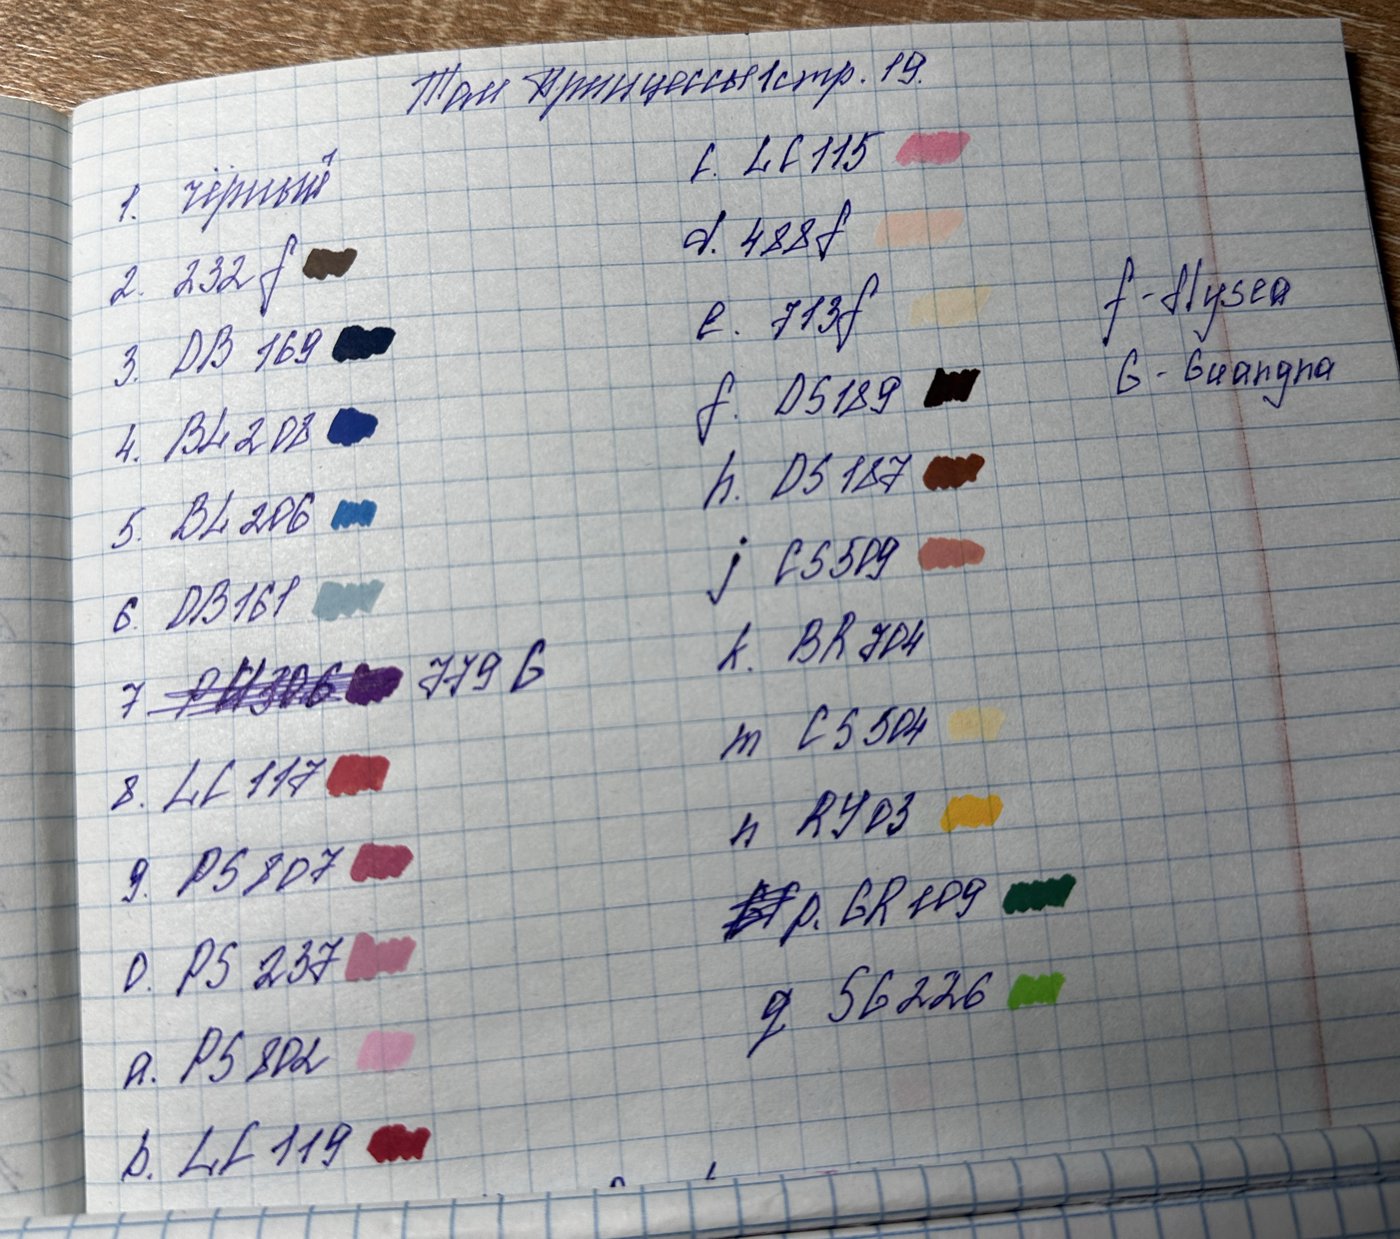 Том Принцессы 1 стр. 19.
1. чёрный
2. 232 f
3. DB 169
4. BL 208
5. BL 206
6. DB 161
7 779 G
8. LC 117
9. PS 807
0. PS 237
a. PS 802
b. LC 119
c. LC 115
d. 488f
e. 713f
f. DS 189
h. DS 187
j CS 509
k. BR 704
m CS 504
n RY 03
p. GR 109
q SG 226
f - flysea
G - Guangna